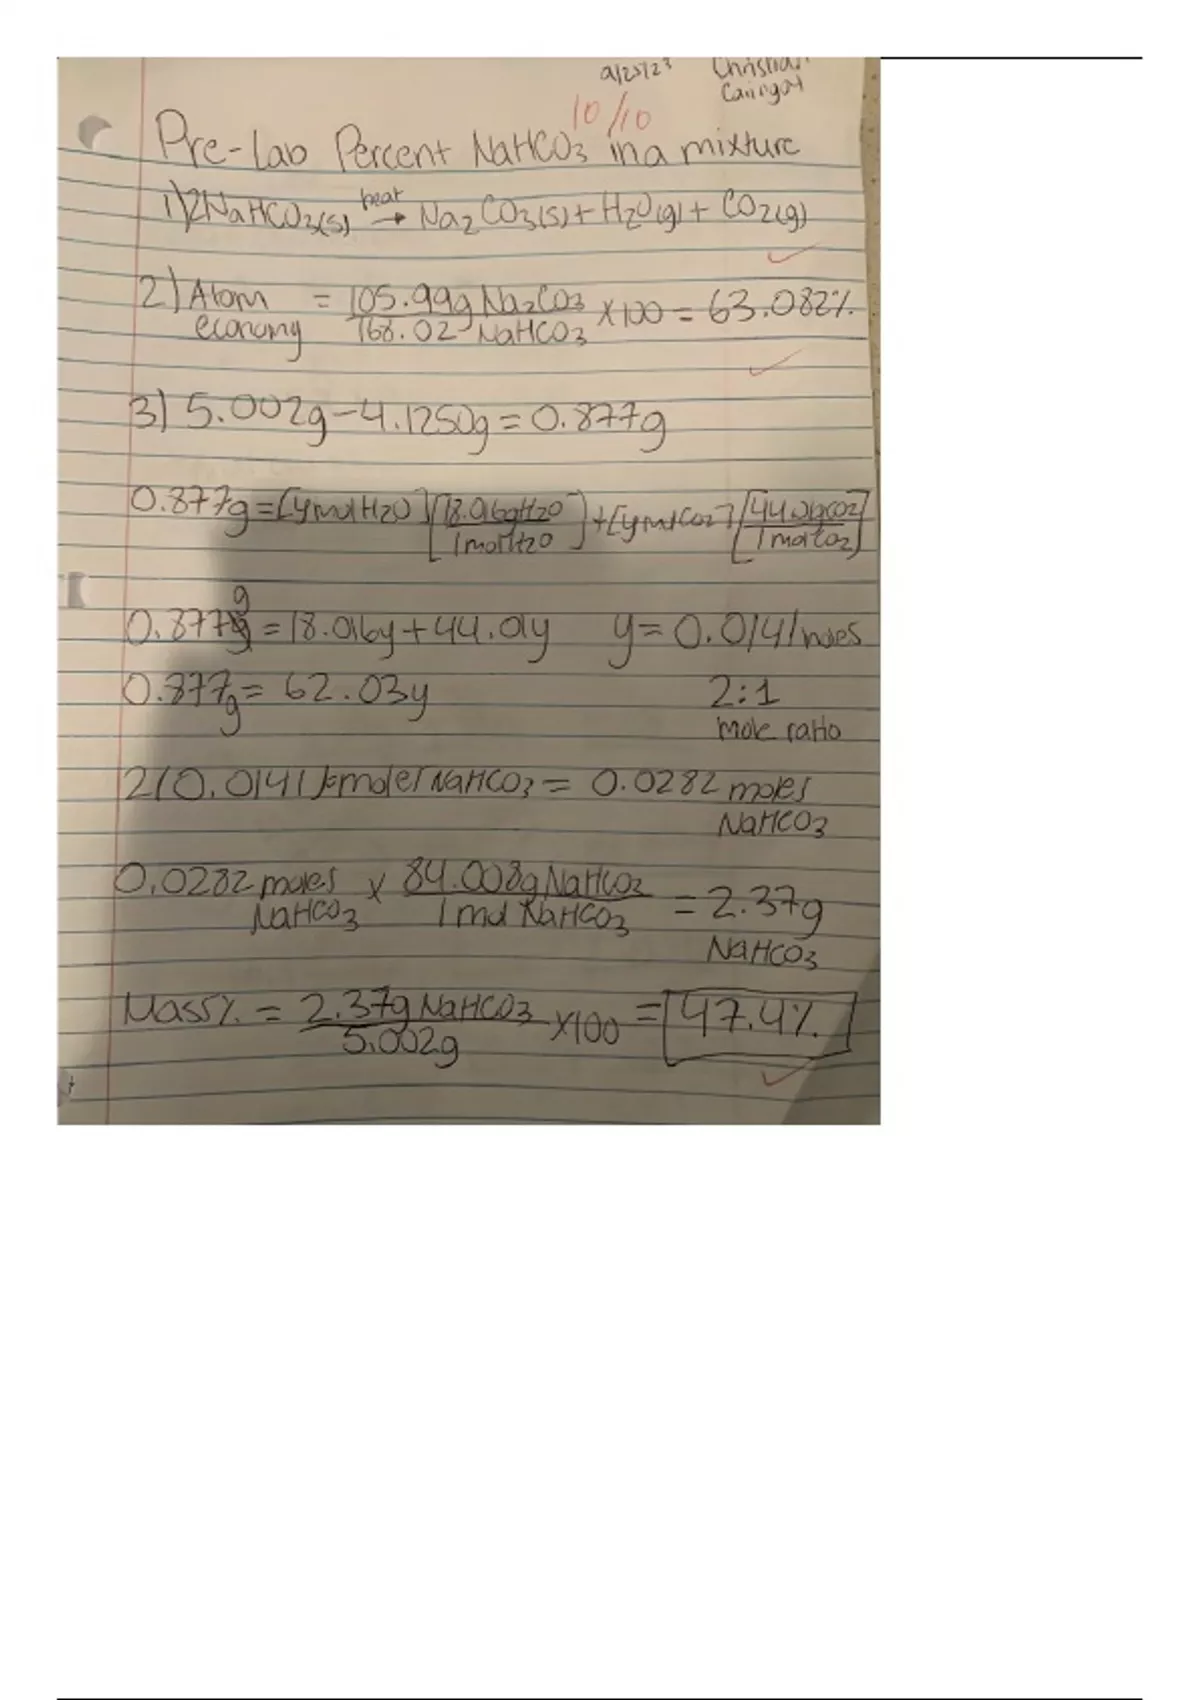 9/25/23 Christian
10/10
Pre-Lab Percent NaHCO3 in a mixture
1) 2NaHCO3(s) heat → Na2CO3(s) + H2O(g) + CO2(g)
2) Atom economy = 105.99g Na2CO3 / 168.02 NaHCO3 x100 = 63.082%
3) 5.002g - 4.1250g = 0.877g
0.877g = [y mol H2O] [18.016g H2O / 1 mol H2O] + [y mol CO2] [44.01g CO2 / 1 mol CO2]
0.877g = 18.016y + 44.01y y = 0.0141 moles
0.877g = 62.03y 2:1
mole ratio
2(0.0141) = moles NaHCO3 = 0.0282 moles NaHCO3
0.0282 moles NaHCO3 x 84.008g NaHCO3 / 1 mol NaHCO3 = 2.37g NaHCO3
Mass % = 2.37g NaHCO3 / 5.002g x100 = 47.4%